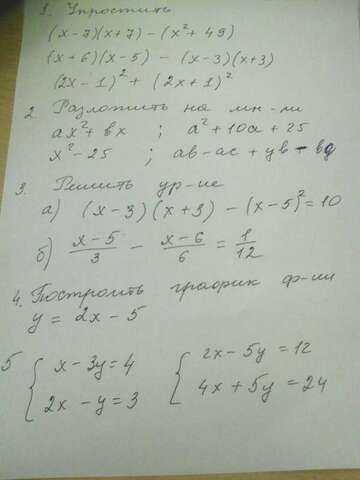 1. Упростить
(x-7)(x+7) - (x²+49)
(x+6)(x-5) - (x-3)(x+3)
(2x-1)² + (2x+1)²
2. Разложить на мн-ли
ax²+bx ; a²+10a+25
x²-25 ; ab-ac+yb-
3. Решить ур-ие
а) (x-3)(x+3) - (x-5)² = 10
б) (x-5)/3 - (x-6)/6 = 1/12
4. Построить график ф-ии
y = 2x - 5
5 { x-3y=4 { 2x-5y=12
2x-y=3 4x+5y=24